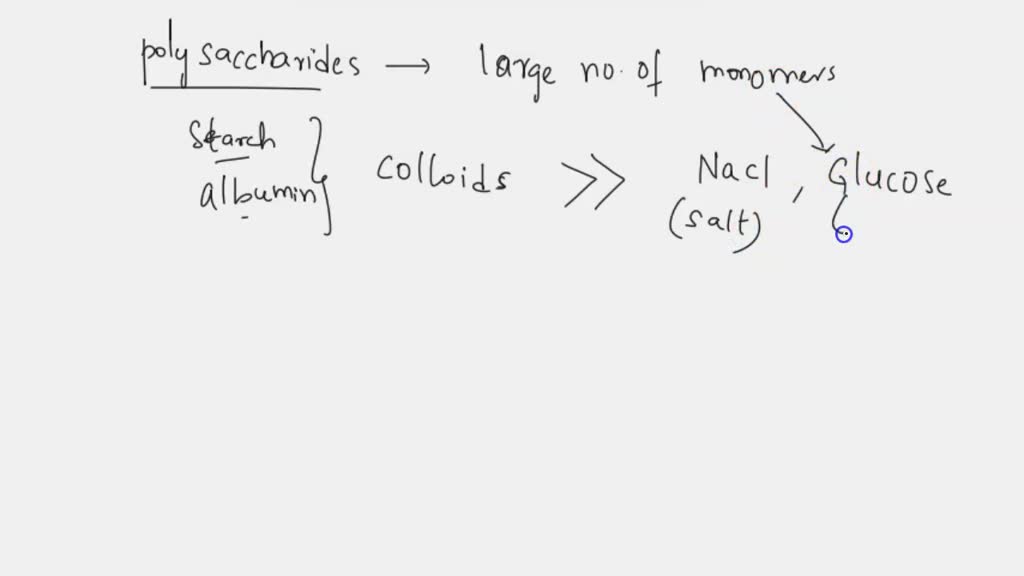 polysaccharides → large no. of monomers
Starch
albumin } colloids >> Nacl , Glucose
(salt)